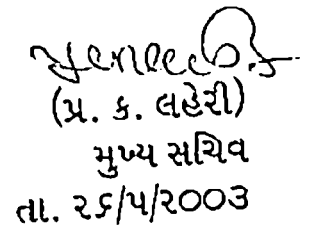 (પ્ર. ક. લહેરી)
મુખ્ય સચિવ
તા. ૨૬/૫/૨૦૦૩